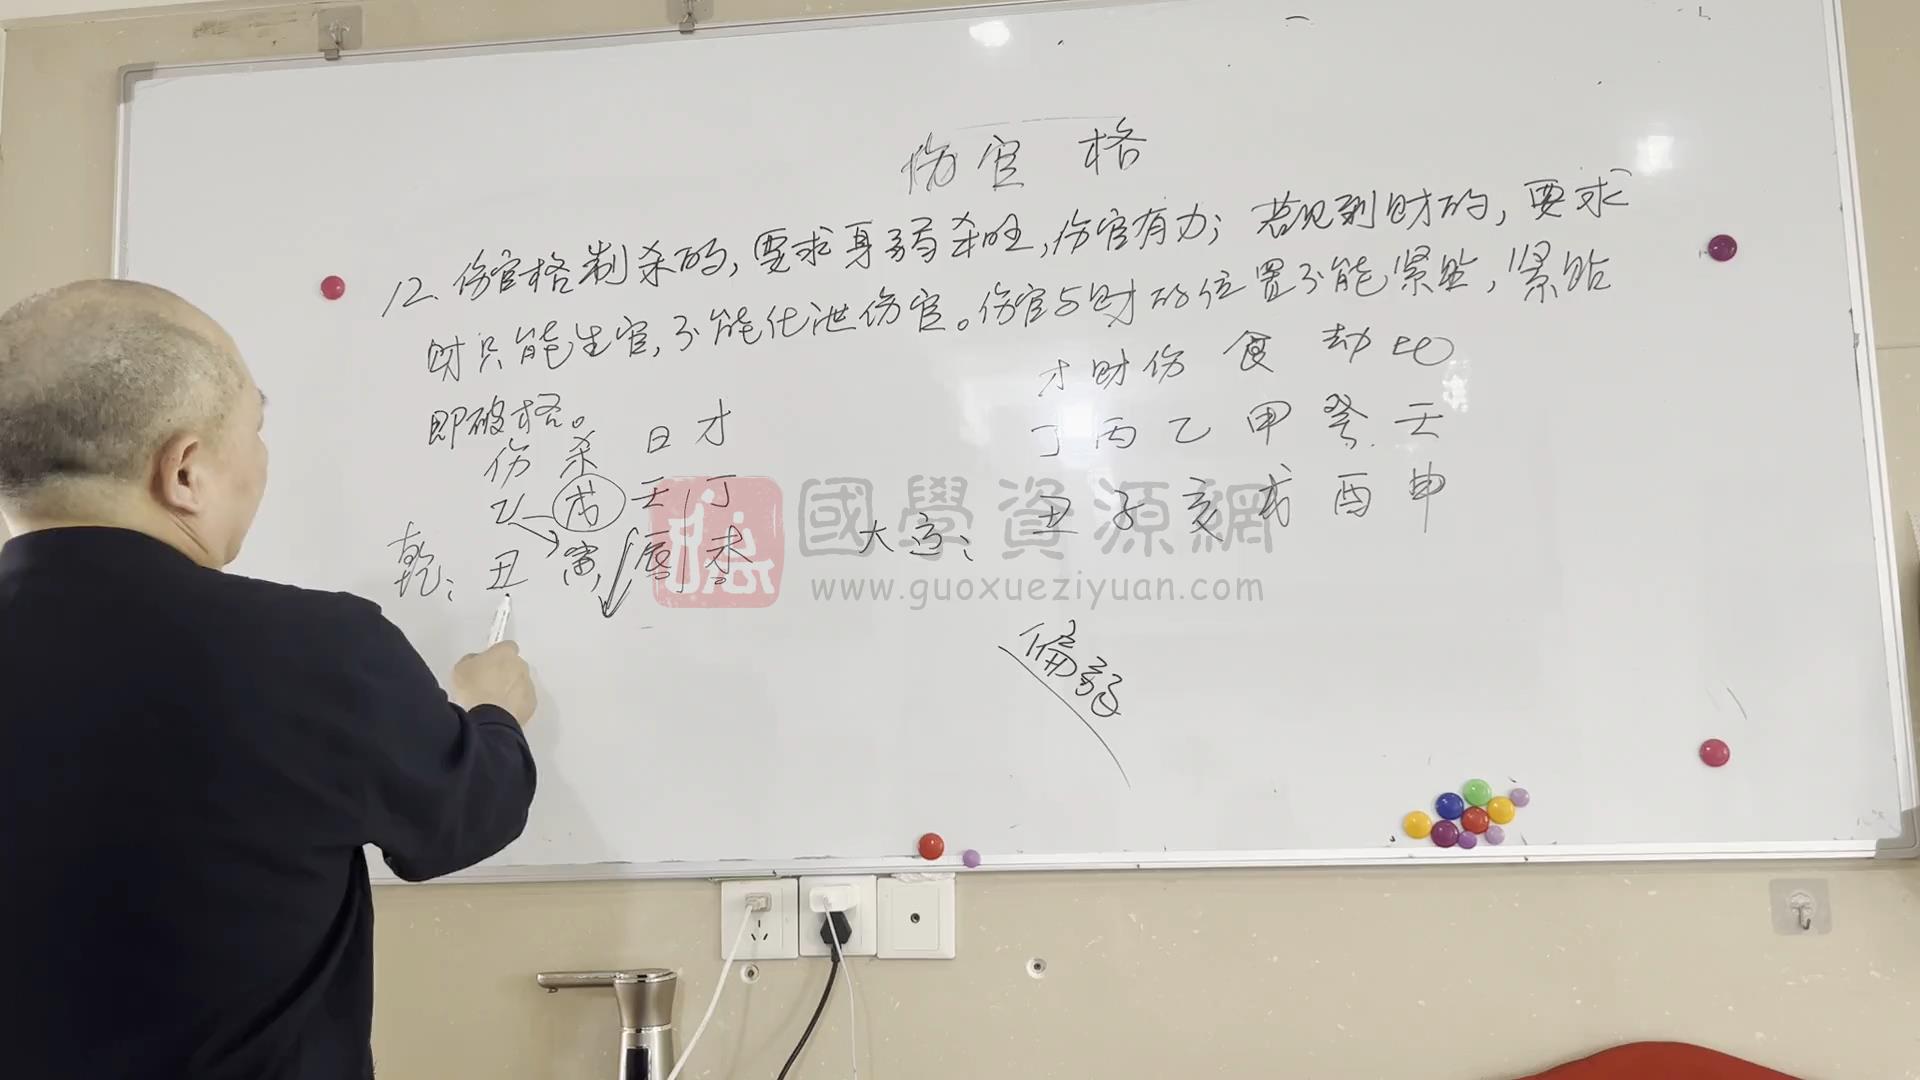 伤官格
12、伤官格制杀的，要求身弱杀旺，伤官有力；若见到财的，要求
财只能生官，不能化泄伤官。伤官与财的位置不能紧贴，紧贴
即破格。
伤 杀 日 才
乙 戊 壬 丁
乾： 丑 寅 辰 未
才 财 伤 食 劫 比
丁 丙 乙 甲 癸 壬
大运： 丑 子 亥 戌 酉 申
偏弱
國學資源網
www.guoxueziyuan.com